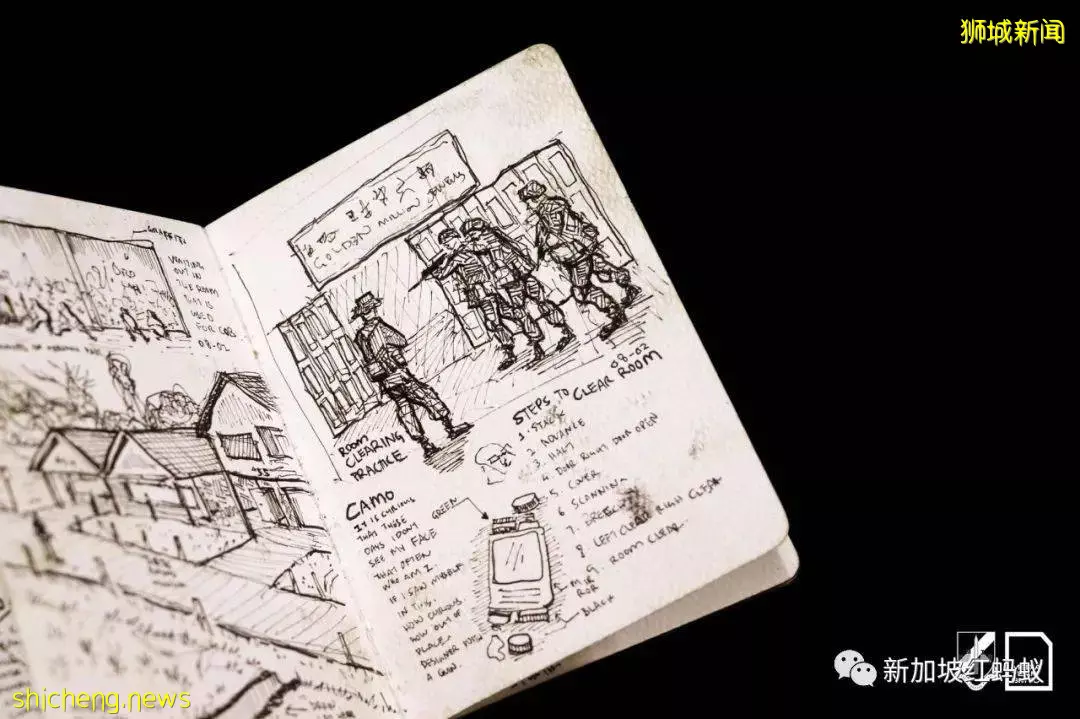 狮城新闻
GRAFFITI
WAITING
OUT IN
THE ROOM
THAT IS
USED
FOR
08-02
GOLDEN MILLION JEWELS
08-02
ROOM
CLEARING
PRACTICE
STEPS TO CLEAR ROOM
1. STACK
2. ADVANCE
3. HALT
4. DOOR RIGHT DOOR OPEN
5. COVER
6 SCANNING
7.
8. LEFT CLEAR RIGHT CLEAR
9. ROOM CLEAR
CAMO
IT IS CURIOUS
THAT THESE
DAYS I DON'T
SEE MY FACE
THAT OFTEN
WHO AM I.
IF I SAW MYSELF
IN THIS.
HOW CURIOUS
HOW OUT OF
PLACE.
DESIGNER WITH
A GUN.
GREEN
MIR
ROR
BLACK
新加坡红蚂蚁
shicheng.news